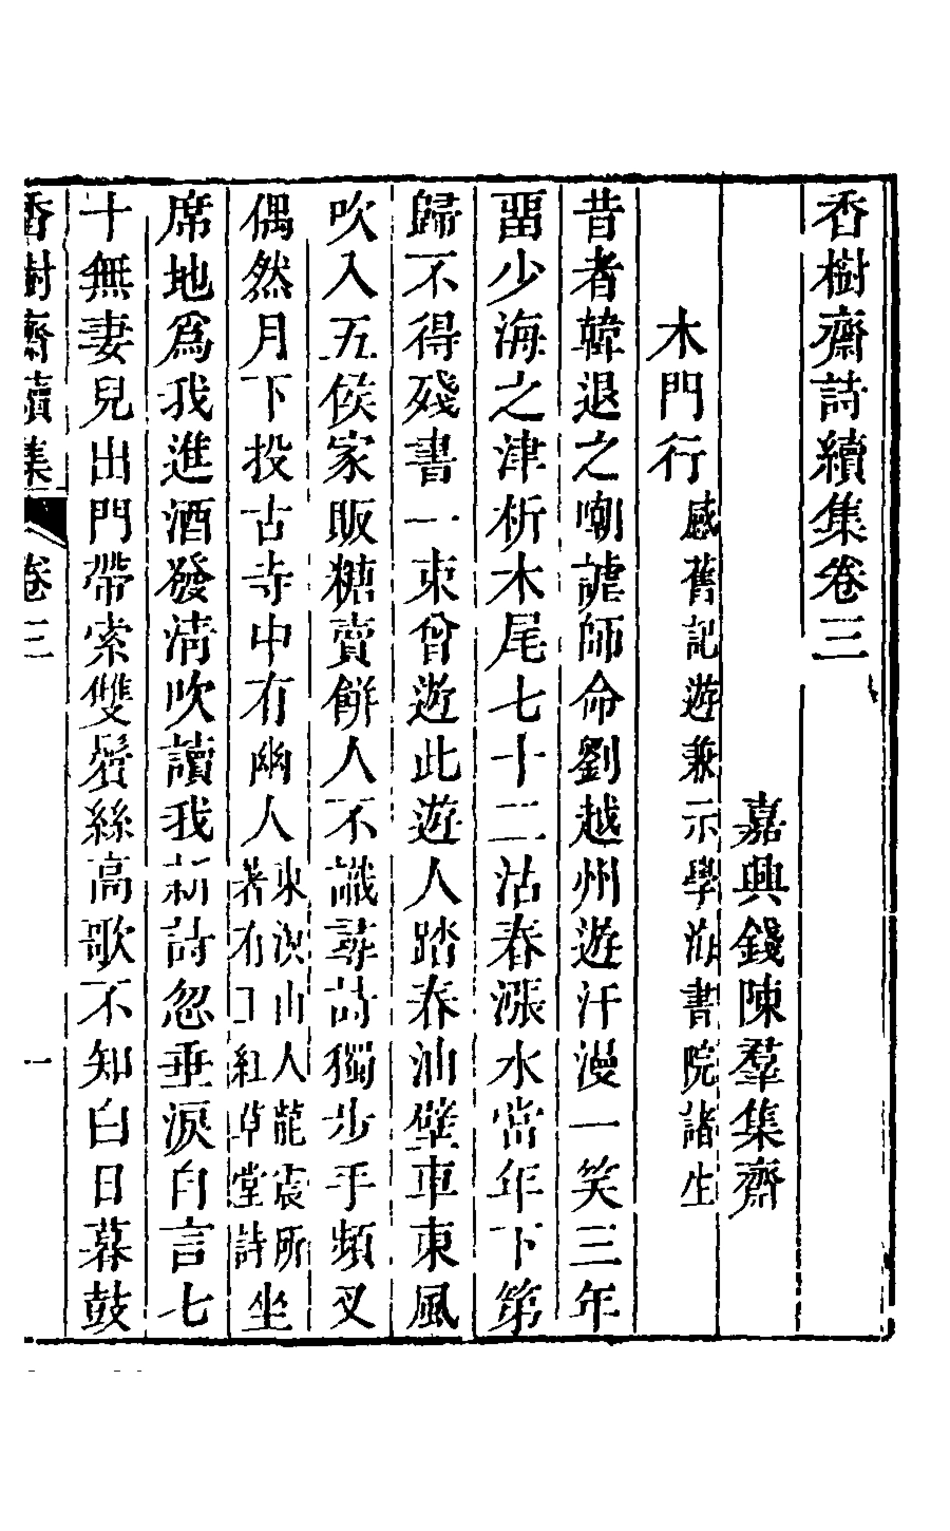 香樹齋詩續集卷三
嘉興錢陳羣集齋
木門行感舊記遊兼示學海書院諸生
昔者韓退之嘲謔師命劉越州遊汗漫一笑三年
畱少海之津析木尾七十二沽春漲水當年下第
歸不得殘書一束曾遊此遊人踏春油壁車東風
吹入五侯家販糖賣餅人不識尋詩獨步手頻叉
偶然月下投古寺中有幽人東溟山人龍震所著有紅草堂詩坐
席地爲我進酒發淸吹讀我新詩忽垂淚自言七
十無妻兒出門帶索雙鬢絲高歌不知白日暮鼓
香樹齋續集 卷三 一